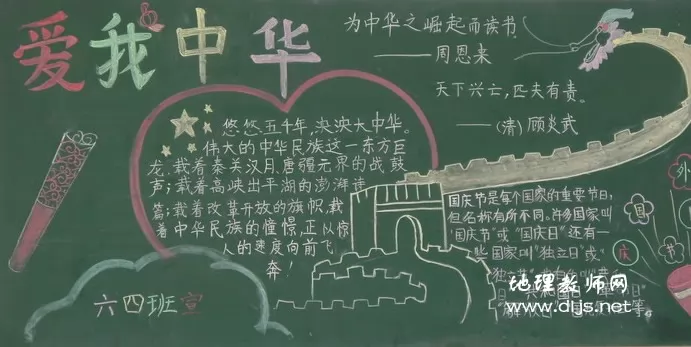 爱我中华
为中华之崛起而读书
——周恩来
天下兴亡，匹夫有责。
——(清)顾炎武
悠悠五千年，泱泱大中华。
伟大的中华民族这一东方巨
龙，载着秦关汉月、唐疆元界的战鼓
声；载着高峡出平湖的澎湃诗
篇；载着改革开放的旗帜，载
着中华民族的憧憬，正以惊
人的速度向前飞
奔！
国庆节是每个国家的重要节日，
但名称有所不同。许多国家叫
"国庆节"或"国庆日"还有一
些国家叫"独立日"或
六四班宣
外
国
庆
节
地理教师网
www.dljs.net